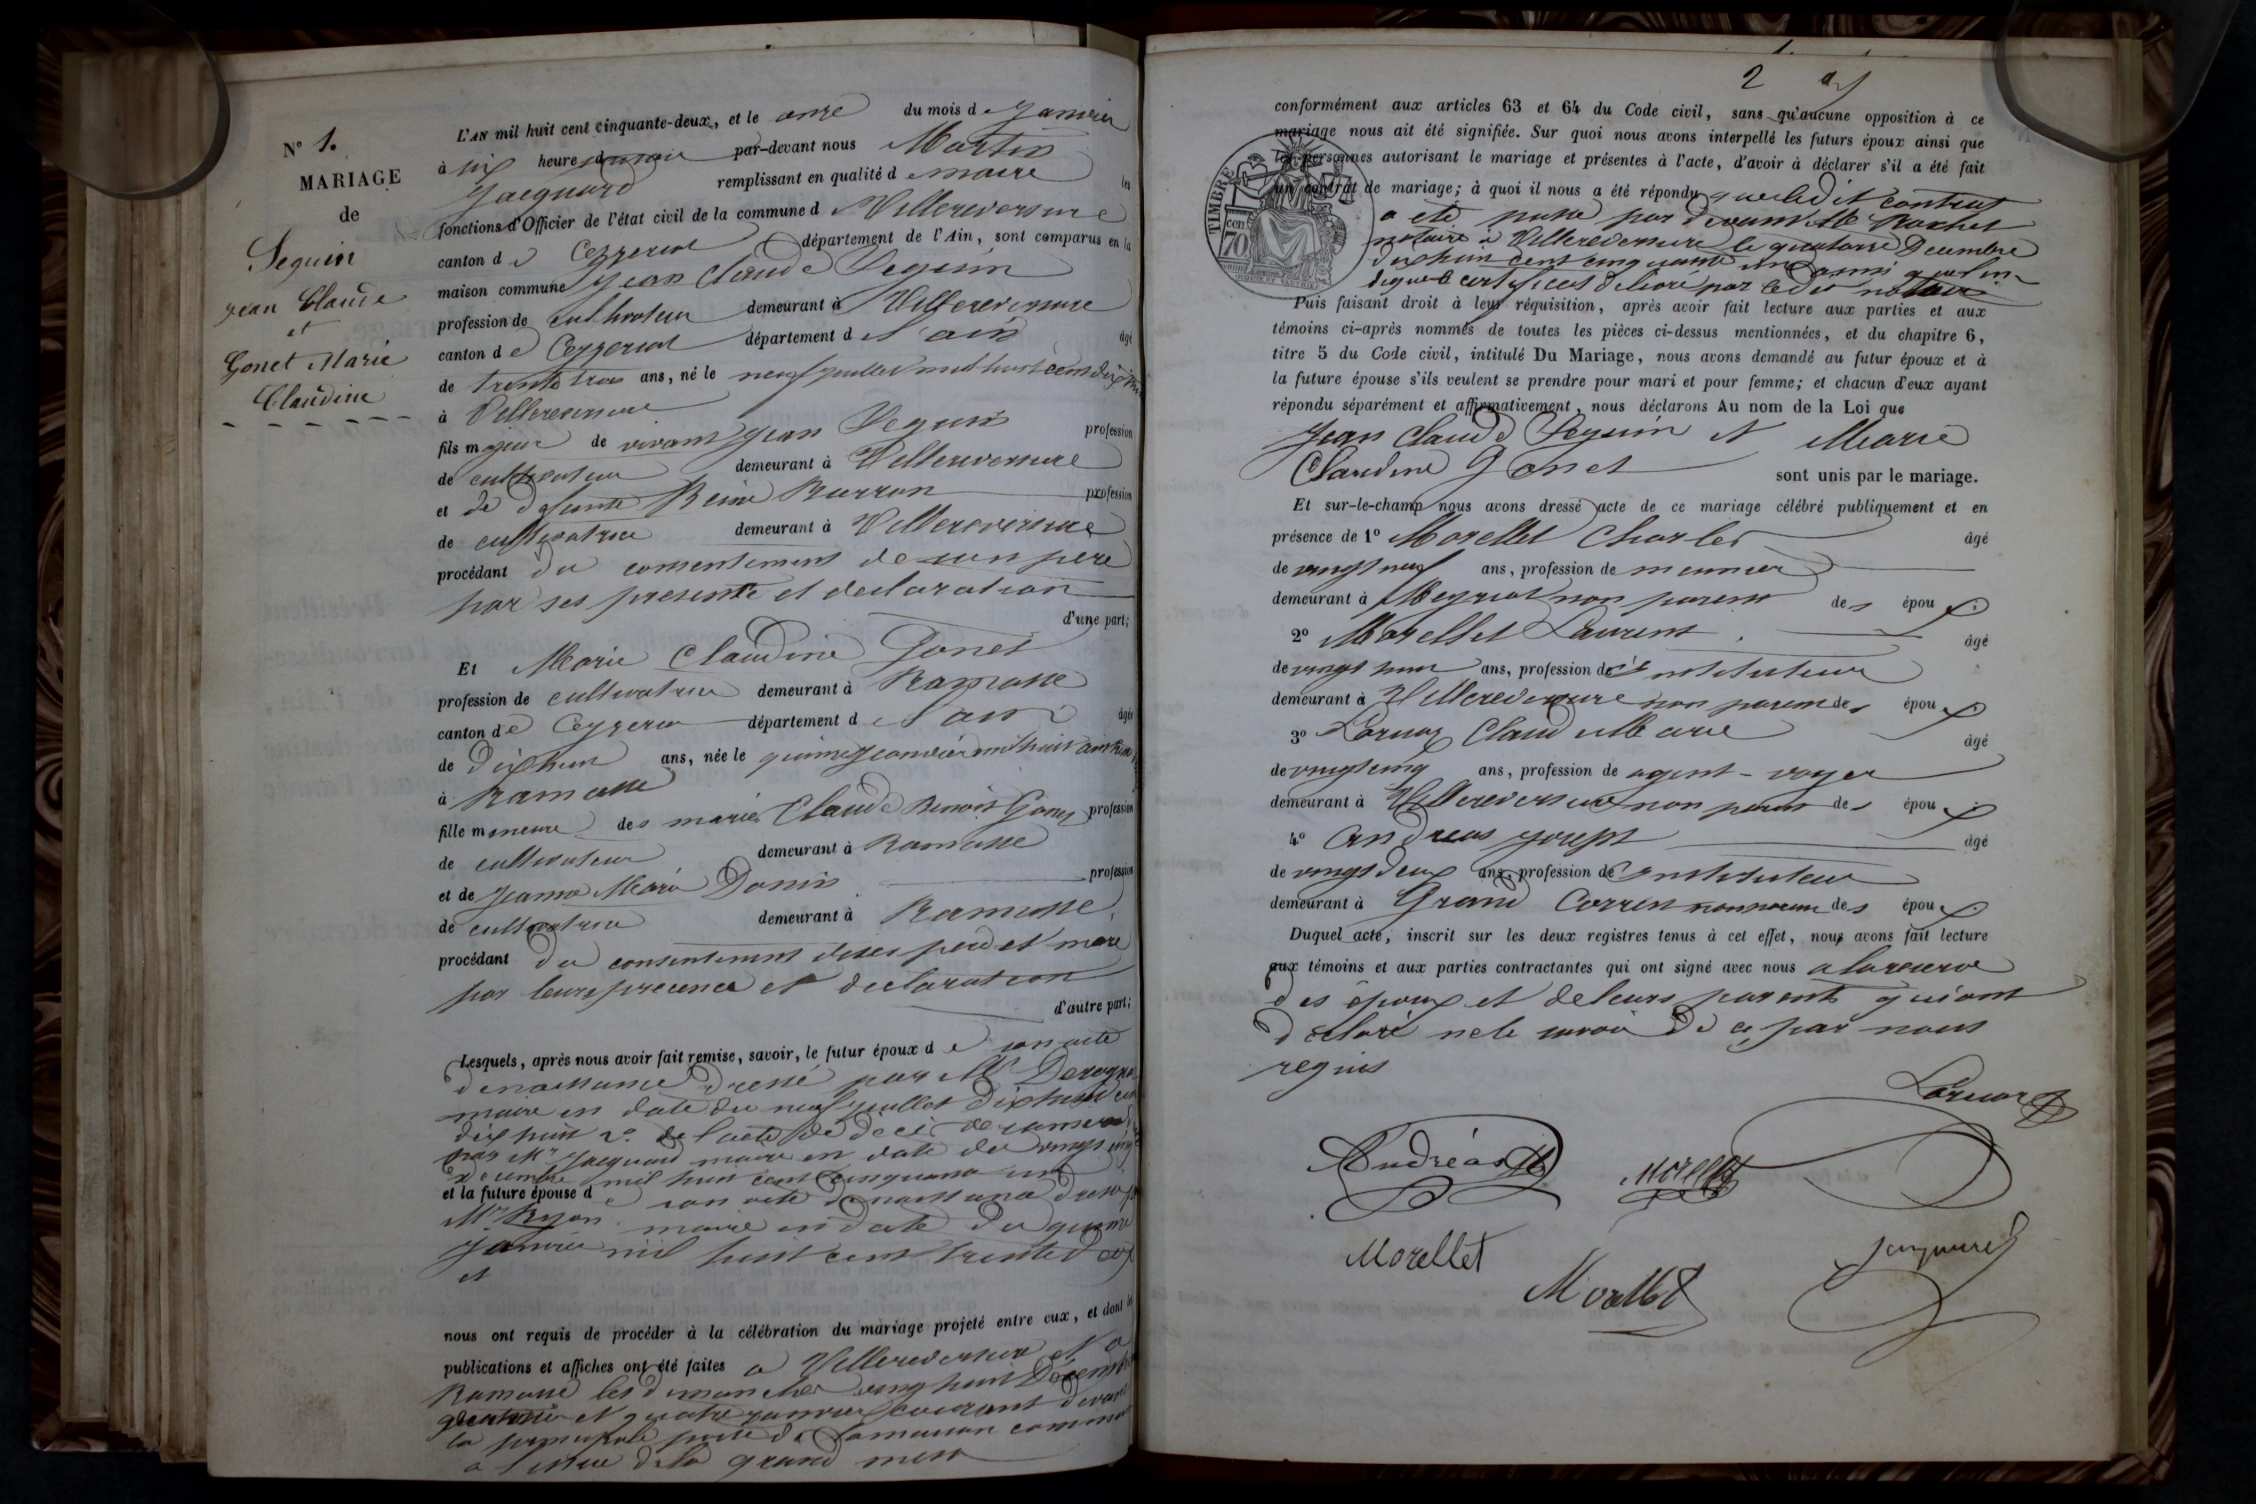 N° 1.
MARIAGE
de
Seguin
Jean Claude
et
Gonet Marie
Claudine
L'AN mil huit cent cinquante-deux, et le onze du mois d e Janvier
à six heure du soir par-devant nous Martin
Jacquard remplissant en qualité d e maire les
fonctions d'Officier de l'état civil de la commune d e Villereversure
canton d e Ceyzeriat département de l'Ain, sont comparus en la
maison commune Jean Claude Seguin
profession de cultivateur demeurant à Villereversure
canton d e Ceyzeriat département d e l'ain âgé
de trente trois ans, né le neuf juillet mil huit cent dix huit
à Villereversure
fils majeur de vivant Jean Seguin profession
de cultivateur demeurant à Villereversure
et de defunte Reine Burron profession
de cultivatrice demeurant à Villereversure
procédant du consentement de son pere
par ses presente et declaration
d'une part;
Et Marie Claudine Gonet
profession de cultivatrice demeurant à Ramasse
canton d e Ceyzeria département d e l'ain âgée
de dix huit ans, née le quinze janvier mil huit cent
à Ramasse
fille mineure des mariés Claude Benoit Gonet profession
de cultivateur demeurant à Ramasse
et de Jeanne Marie Donin profession
de cultivatrice demeurant à Ramasse
procédant du consentement de ses pere et mere
par leurs presence et declaration
d'autre part;
Lesquels, après nous avoir fait remise, savoir, le futur époux d e son acte
de naissance dressé par Mr
maire en date du neuf juillet dix huit cent
dix huit 2° de l'acte de décès de sa mere
par Mr Jacquard maire en date du vingt cinq
decembre mil huit cent cinquante un
et la future épouse d e son acte de naissance dressé par
Mr Ryon maire en date du quinze
Janvier mil huit cent trente
et
nous ont requis de procéder à la célébration du mariage projeté entre eux, et dont les
publications et affiches ont été faites a Villereversure et a
Ramasse les dimanches vingt huit Décembre
et quatre janvier courant devant
la principale porte de la maison commune
a l'issue de la grand messe
2
conformément aux articles 63 et 64 du Code civil, sans qu'aucune opposition à ce
mariage nous ait été signifiée. Sur quoi nous avons interpellé les futurs époux ainsi que
les personnes autorisant le mariage et présentes à l'acte, d'avoir à déclarer s'il a été fait
un contrat de mariage; à quoi il nous a été répondu que ledit contrat
a eté passé par devant Me
notaire à Villereversure le quatorze Decembre
dix huit cent cinquante un ainsi que l'in-
dique le certificat delivré par ledit notaire
TIMBRE
70
Puis faisant droit à leur réquisition, après avoir fait lecture aux parties et aux
témoins ci-après nommés de toutes les pièces ci-dessus mentionnées, et du chapitre 6,
titre 5 du Code civil, intitulé Du Mariage, nous avons demandé au futur époux et à
la future épouse s'ils veulent se prendre pour mari et pour femme; et chacun d'eux ayant
répondu séparément et affirmativement, nous déclarons Au nom de la Loi que
Jean Claude Seguin et Marie
Claudine Gonet sont unis par le mariage.
Et sur-le-champ nous avons dressé acte de ce mariage célébré publiquement et en
présence de 1° Morellet Charles âgé
de vingt neuf ans, profession de meunier
demeurant à Meyriat non parent des époux.
2° Morellet Laurent âgé
de vingt huit ans, profession d'instituteur
demeurant à Villereversure non parent des époux
3° Lornoz Claude Marie âgé
de vingt cinq ans, profession de agent-voyer
demeurant à Villereversure non parent des époux.
4° Andreas joseph âgé
de vingt deux ans, profession de instituteur
demeurant à Grand Corrent non parent des époux.
Duquel acte, inscrit sur les deux registres tenus à cet effet, nous avons fait lecture
aux témoins et aux parties contractantes qui ont signé avec nous a la reserve
des époux et de leurs parents qui ont
déclaré ne le savoir de ce par nous
requis
Lornoz
Andréas
Morellet
Morellet
Morellet
Jacquard